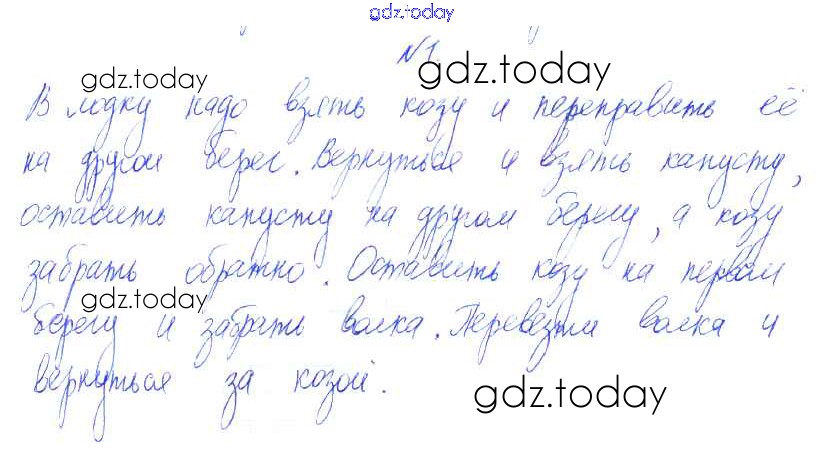 gdz.today
№1.
gdz.today gdz.today
В лодку надо взять козу и переправить её
на другой берег. Вернуться и взять капусту,
оставить капусту на другом берегу, а козу
забрать обратно. Оставить козу на первом
gdz.today gdz.today
берегу и забрать волка. Перевезти волка и
вернуться за козой.
gdz.today